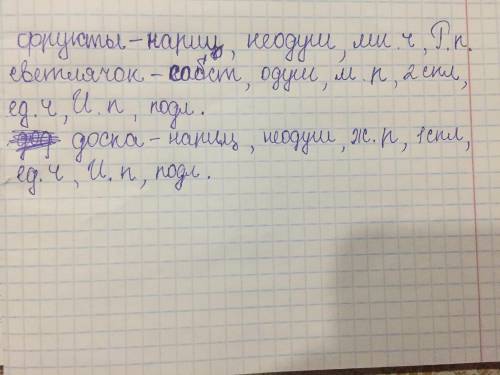 фрукты - нариц, неодуш, мн. ч, Р. п.
светлячок - собст, одуш, м. р, 2 скл,
ед. ч, И. п, подл.
доска - нариц, неодуш, ж. р, 1 скл,
ед. ч, И. п, подл.